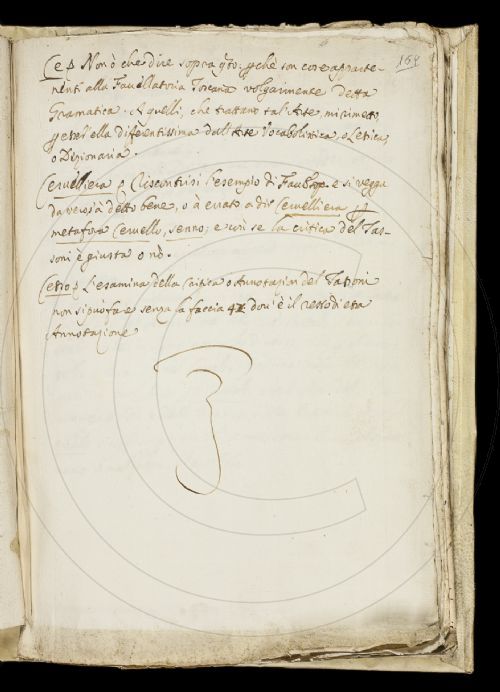 169
Ce p Non ò che dire sopra q̃to: p̱chè son cose apparte-
nenti alla Favellatoria Toscana volgarmente detta
Gramatica. A quelli, che trattano tal Arte, mi rimetto,
ella differentissima dall'Arte Vocabolistica, o Letica,
o Dizionaria.
Cervelliera p Riscontrisi l'esempio di e si vegga
da versi à detto bene, o à errato a dir Cervelliera p̱
metafora Cervello, senno; e così se la critica del Tas-
soni è giusta o nò.
Cetio p L'esamina della Critica o Annotazion del Tassoni
non si può fare senza la faccia 42 dov'è il resto di eta
Annotazione